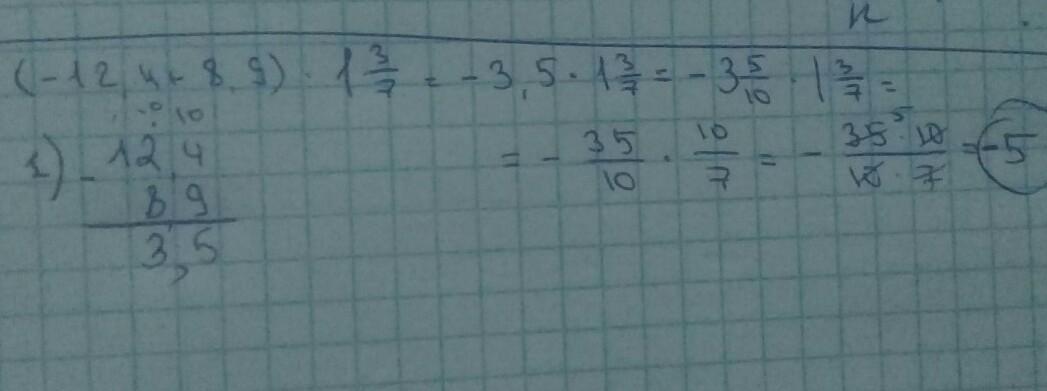 н
(-12,4+8,9) · 1 3/7 = -3,5 · 1 3/7 = -3 5/10 · 1 3/7 =
10
1) - 12,4
8 9
3,5
= - 35/10 · 10/7 = - 35 5 · 10/10 · 7 = -5